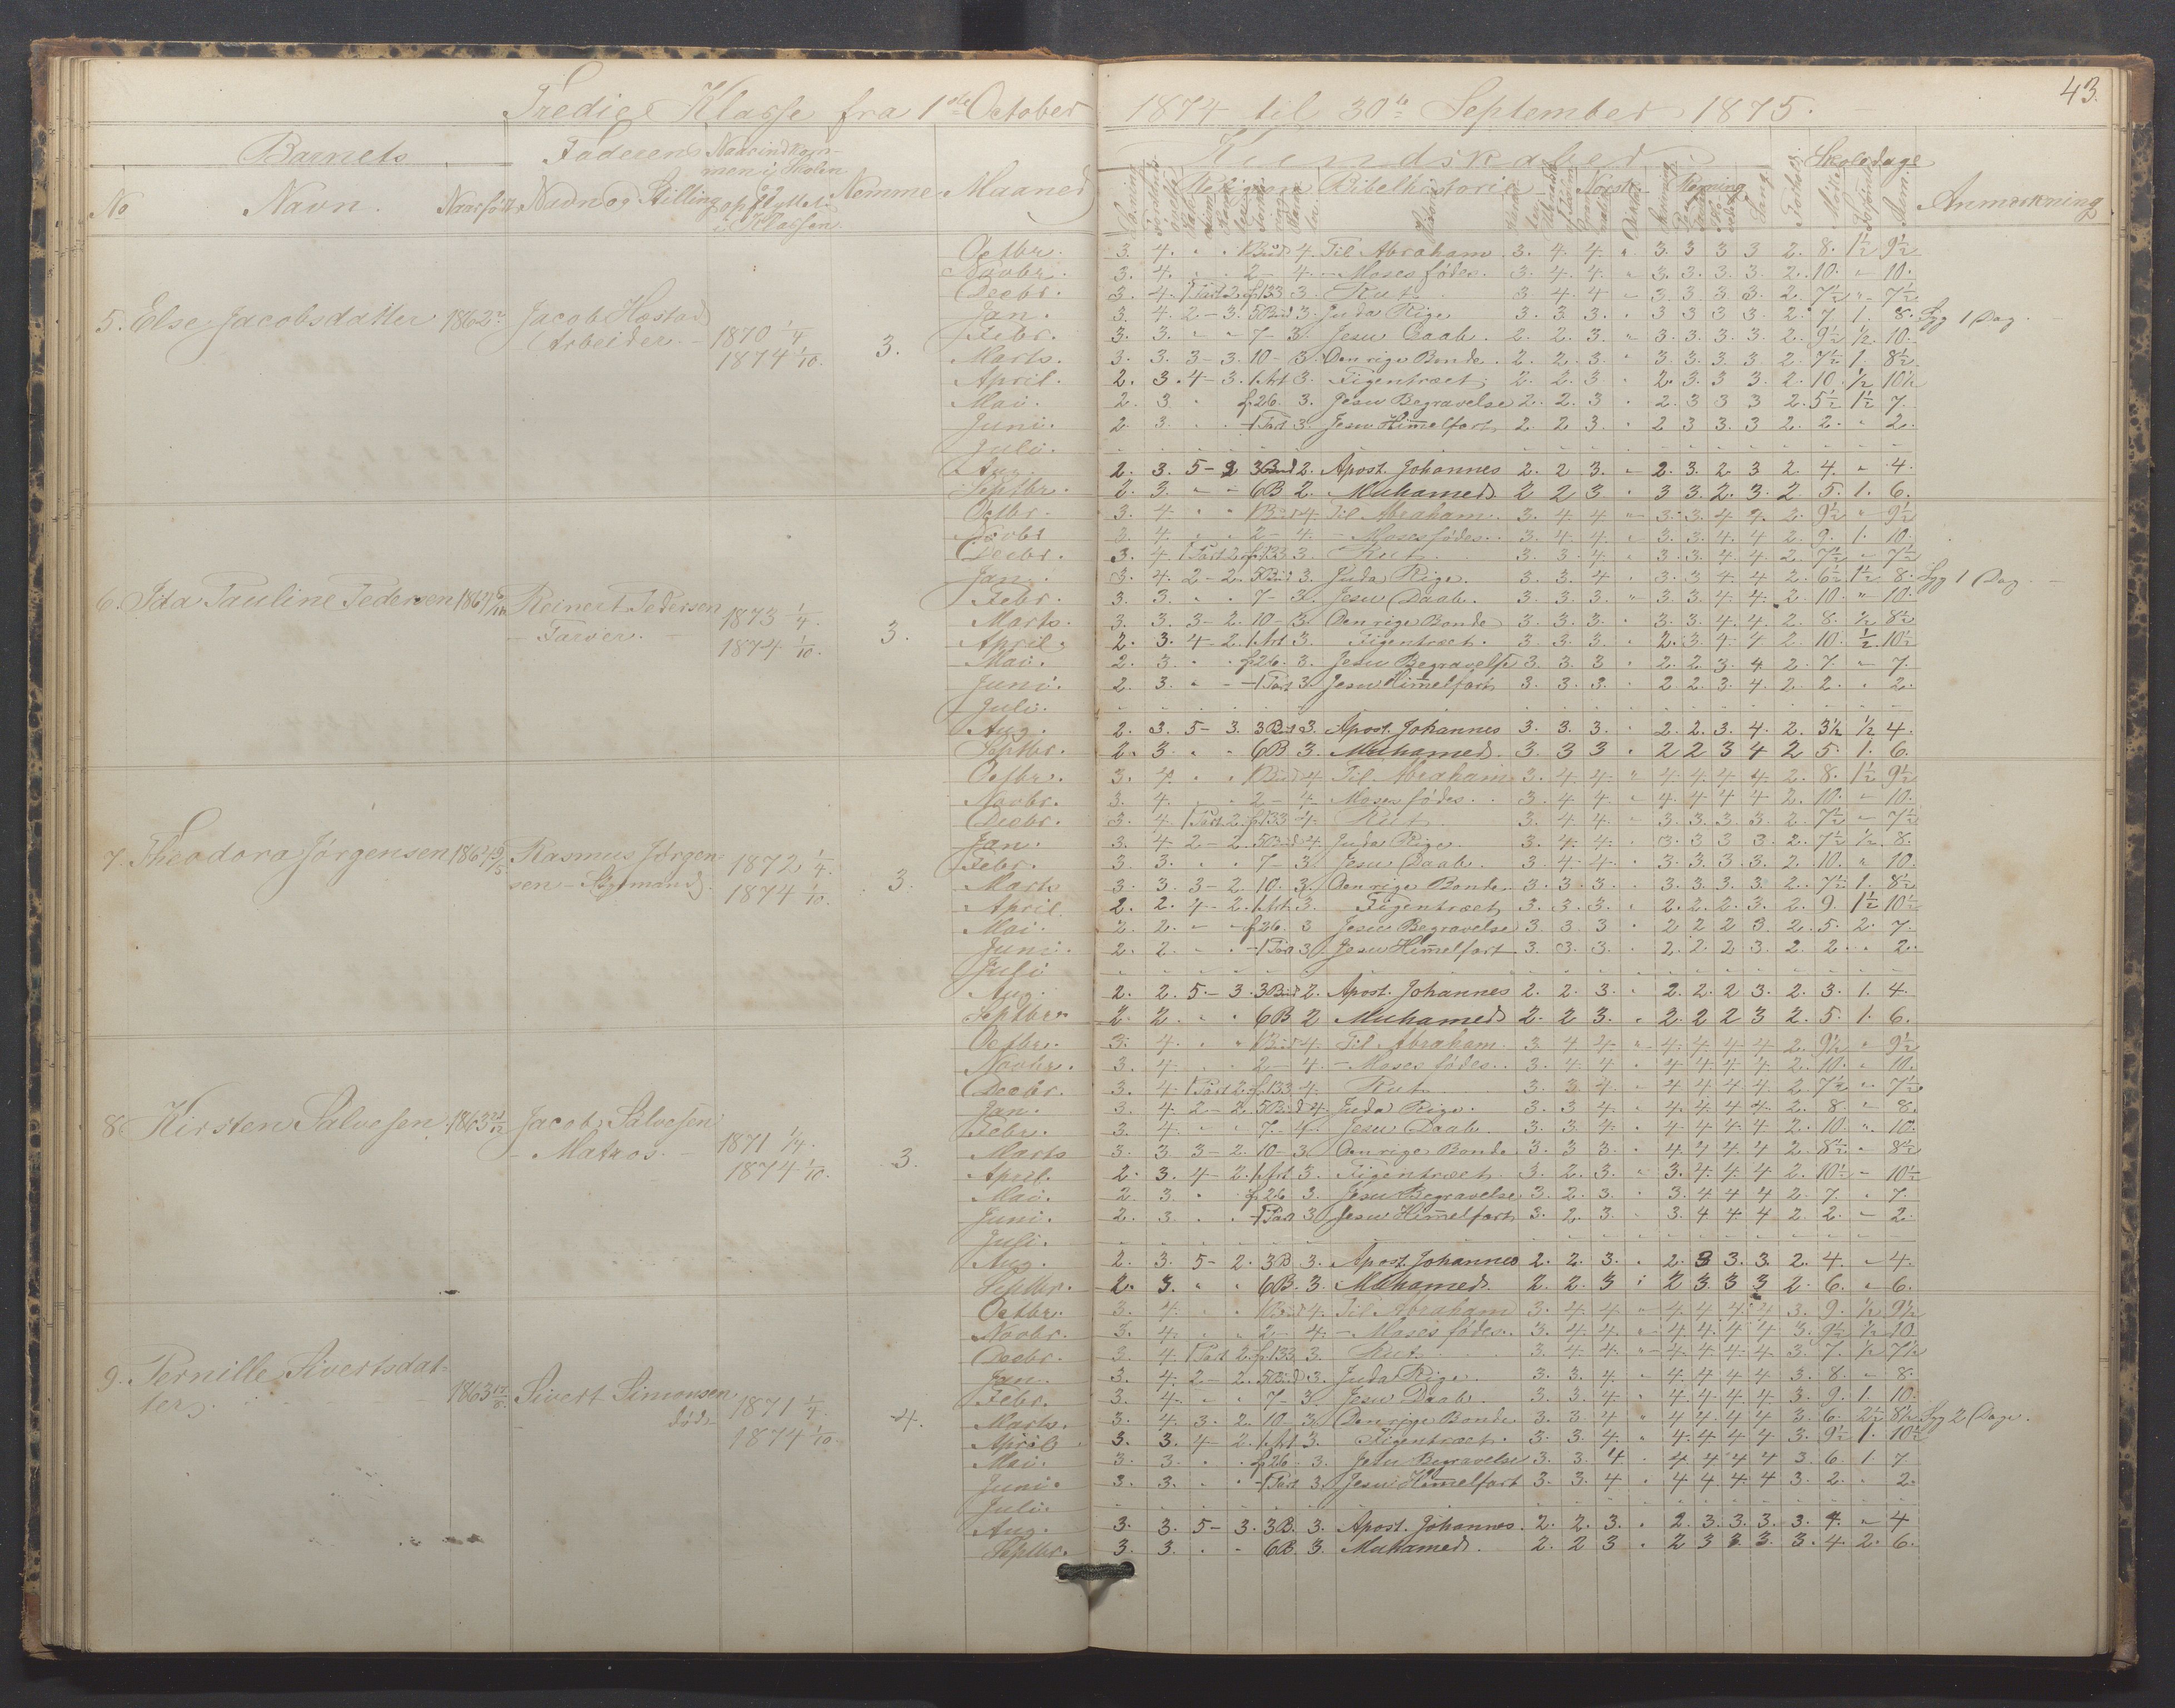 Tredie Klasse fra 1ste October 1874 til 30te September 1875.
43.
Barnets Faderens Naar indkommen i Skolen og opflyttet i Klassen Nemme Maaned Kundskaber Skoledage Anmærkning
No Navn. Naar født Navn og Stilling Religion Bibelhistorie Norsk Regning Sang Forhold Mødt Forsømt Sum
5. Else Jacobsdatter 1862 Jacob Hæstad Arbeider. 1870 1/4 1874 1/10. 3.
Octbr. 3. 4. " " 1 Bud 4. Til Abraham 3. 4. 4. " 3. 3 3 3 2. 8. 1½ 9½
Novbr. 3. 4. " " 2 - 4. - Moses fødes. 3. 4. 4. " 3. 3. 3. 3. 2. 10. " 10.
Decbr. 3. 4. 1 Part 2. f. 133 3. Rut 3. 4. 4 " 3. 3 3. 3. 2. 7½ " 7½
Jan. 3. 4. 2 - 3. 5 Bud 3. Juda Rige 3. 3. 3. " 3 3 3. 3. 2. 7. 1. 8. Syg 1 Dag.
Febr. 3. 3. " " 7 - 3. Jesu Daab. 2. 2. 3. " 3. 3. 3. 3. 2. 9½ ½ 10.
Marts. 3. 3. 3 - 3. 10 - 3. Den rige Bonde. 2. 2. 3. " 3. 3. 3. 3. 2. 7½ 1. 8½
April. 2. 3. 4 - 3. 1. Art 3. Figentræet. 2. 2. 3 " 2. 3. 3 3. 2. 10. ½ 10½
Mai. 2. 3. " f. 26. 3. Jesu Begravelse 2. 2. 3 " 2. 3 3 3 2. 5½ 1½ 7.
Juni. 2. 3. " " 1 Part 3. Jesu Himmelfart 2. 2 3. " 2 3 3. 3 2. 2. " 2.
Juli.
Aug. 2. 3. 5 - 3 3 Bud 2. Apost. Johannes 2. 2 3. " 2. 3. 2 3 2 4. " 4.
Septbr. 2. 3. " " 6 B 2. Muhamed. 2 2 3 " 3 3. 2. 3. 2 5. 1. 6.
6. Ida Pauline Pedersen 1864 Reinert Pedersen - Farver. 1873 1/4. 1874 1/10. 3.
Octbr. 3. 4. " " 1 Bud 4. Til Abraham. 3. 4. 4 " 3. 3. 4 4. 2. 9½ " 9½
Novbr 3. 4. " " 2 - 4. - Moses fødes. 3. 4. 4. " 3. 3. 4. 4 2. 9. 1. 10.
Decbr. 3. 4. 1 Part 2. f. 133 3. Rut 3. 3. 4. " 3. 3. 4. 4. 2. 7½ " 7½
Jan. 3. 4. 2 - 2. 5 Bud 3. Juda Rige. 3. 3. 4. " 3. 3 4 4. 2. 6½ 1½ 8. Syg 1 Dag.
Febr. 3. 3. " " 7 - 3. Jesu Daab. 3. 3. 3. " 3. 3. 4. 4. 2. 10. " 10.
Marts. 3. 3. 3 - 2. 10 - 3. Den rige Bonde 3. 3. 3. " 3. 3. 4. 4. 2. 8. ½ 8½
April. 2. 3. 4 - 2. 1. Art 3. Figentræet. 3. 3. 3. " 2. 3. 4. 4 2. 10. ½ 10½
Mai. 2. 3. " " f. 26. 3. Jesu Begravelse 3. 3. 3 " 2. 2. 3. 4. 2. 7. " 7.
Juni. 2. 3. " " 1 Part 3. Jesu Himmelfart 3. 3. 3. " 2. 2. 3. 4. 2. 2. " 2.
Juli.
Aug. 2. 3. 5 - 3. 3 Bud 3. Apost. Johannes 3. 3. 3. " 2. 2. 3. 4. 2. 3½ ½ 4.
Septbr. 2. 3. " " 6 B 3. Muhamed. 3. 3 3 " 2 2 3 4 2 5. 1. 6.
7. Theodora Jørgensen 1864 Rasmus Jørgensen - Bymand. 1872 1/4. 1874 1/10. 3.
Octbr. 3. 4. " " 1 Bud 4. Til Abraham 3. 4. 4. " 4. 4. 4. 4. 2. 8. 1½ 9½
Novbr. 3. 4. " " 2 - 4. Moses fødes. 3. 4. 4. " 4. 4. 4. 4 2. 10. " 10.
Decbr. 3. 4. 1 Part 2. f. 133 4. Rut. 3. 4. 4. " 3. 3. 3. 3. 2. 7½ " 7½
Jan. 3. 4 2 - 2. 5 Bud 4. Juda Rige. 3. 4. 4. " 3. 3 3 3. 2. 7½ ½ 8.
Febr. 3 3. " " 7 - 3. Jesu Daab. 3. 4 4. " 3. 3. 3. 3. 2. 10. " 10.
Marts 3. 3 3 - 2. 10. 3. Den rige Bonde 3. 3. 3. " 3. 3. 3. 3. 2. 7½ 1. 8½
April. 2. 2. 4 - 2. 1. Art. 3. Figentræet 3. 3. 3. " 2. 2. 2. 3. 2. 9. 1½ 10½
Mai. 2. 2. " " f. 26. 3 Jesu Begravelse 3. 3 3 " 2 2 2 3 2. 5. 2. 7.
Juni. 2. 2. " " 1 Part 3. Jesu Himmelfart 3. 3. 3. " 2. 2. 2. 3. 2 2. " 2.
Juli
Aug. 2. 2. 5. - 3. 3 Bud 2. Apost. Johannes 2. 2. 3. " 2. 2. 2 3. 2. 3. 1. 4.
Septbr 2. 2. " " 6 B 2 Muhamed 2. 2 3. " 2. 2 2 3 2. 5. 1. 6.
8. Kirsten Salvesen. 1863 Jacob Salvesen - Matros. 1871 1/4. 1874 1/10. 3.
Octbr. 3. 4. " " 1 Bud 4. Til Abraham. 3. 4 4. " 4. 4. 4. 4 2. 9½ " 9½
Novbr. 3. 4. " " 2 - 4. - Moses fødes. 3. 4. 4. " 4. 4. 4. 4. 2. 10. " 10.
Decbr. 3. 4. 1 Part 2. f. 133 4. Rut 3. 3 4. " 4 4. 4. 4 2. 7½ " 7½
Jan. 3. 4. 2 - 2. 5 Bud 4. Juda Rige. 3. 3 4. " 4. 4. 4. 4. 2. 8. " 8.
Febr. 3. 4. " " 7. - 4. Jesu Daab. 3. 3. 4. " 4. 4. 4. 4 2. 10. " 10.
Marts 3. 3. 3 - 2. 10 - 3. Den rige Bonde 3. 3 3. " 4. 4. 4. 4 2. 8½ " 8½
April. 2. 3. 4 - 2. 1. Art 3. Figentræet. 3. 2. 3. " 3. 4. 4. 4 2. 10½ " 10½
Mai. 2. 3. " " f. 26 3. Jesu Begravelse 3. 2. 3. " 3. 4 4 4 2. 7. " 7.
Juni. 2. 3. " " 1 Part 3. Jesu Himmelfart 3. 2. 3. " 3. 4 4. 4 2 2. " 2.
Juli.
Aug. 2. 3. 5 - 2. 3 B. 3. Apost. Johannes 2. 2. 3. " 2. 3 3. 3. 2. 4. " 4.
Septbr. 2. 3. " " 6 B. 3. Muhamed. 2. 2. 3 " 2 3. 3 3 2. 6. " 6.
9. Pernille Sivertsdatter. 1863 Sivert Simonsen død - 1871 1/4 1874 1/10 4.
Octbr. 3. 4. " " 1 Bud 4. Til Abraham 3. 4. 4. " 4. 4. 4. 4 3. 9. ½ 9½
Novbr. 3. 4. " " 2 - 4. - Moses fødes. 3. 4. 4. " 4. 4. 4. 4 3. 9½ ½ 10
Decbr. 3. 4. 1 Part 2. f. 133 3. Rut 3. 4 4. " 4. 4. 4. 4 3. 7. ½ 7½
Jan. 3. 4. 2 - 2. 5 Bud 3. Juda Rige. 3. 3. 4. " 4. 4. 4 4. 3. 8. " 8.
Febr. 3. 4. " " 7 - 3. Jesu Daab. 3. 3. 4. " 4. 4. 4. 4. 3. 9. 1. 10.
Marts. 3. 4. 3. 2. 10 - 3. Den rige Bonde 3. 3 4 " 4 4. 4. 4 3. 6. 2½ 8½ Syg 2 Dage.
April. 3. 3. 4 - 2. 1. Art 3. Figentræet. 3. 3. 4. " 4. 4. 4 4 3. 9½ 1. 10½
Mai. 3. 3. " " f. 26. 3. Jesu Begravelse 3. 3. 4 " 4. 4 4 4 3. 6. 1. 7
Juni. 3. 3. " " 1 Part 3. Jesu Himmelfart 3. 3. 4 " 4 4. 4. 4 3. 2. " 2.
Juli.
Aug. 3. 3. 5 - 3. 3 B. 3. Apost. Johannes. 2. 2. 3. " 2. 3. 3. 3. 3. 4. " 4
Septbr. 3. 3. " - 6 B. 3. Muhamed. 2. 2 3 " 2 3 3. 3. 3. 4. 2. 6.